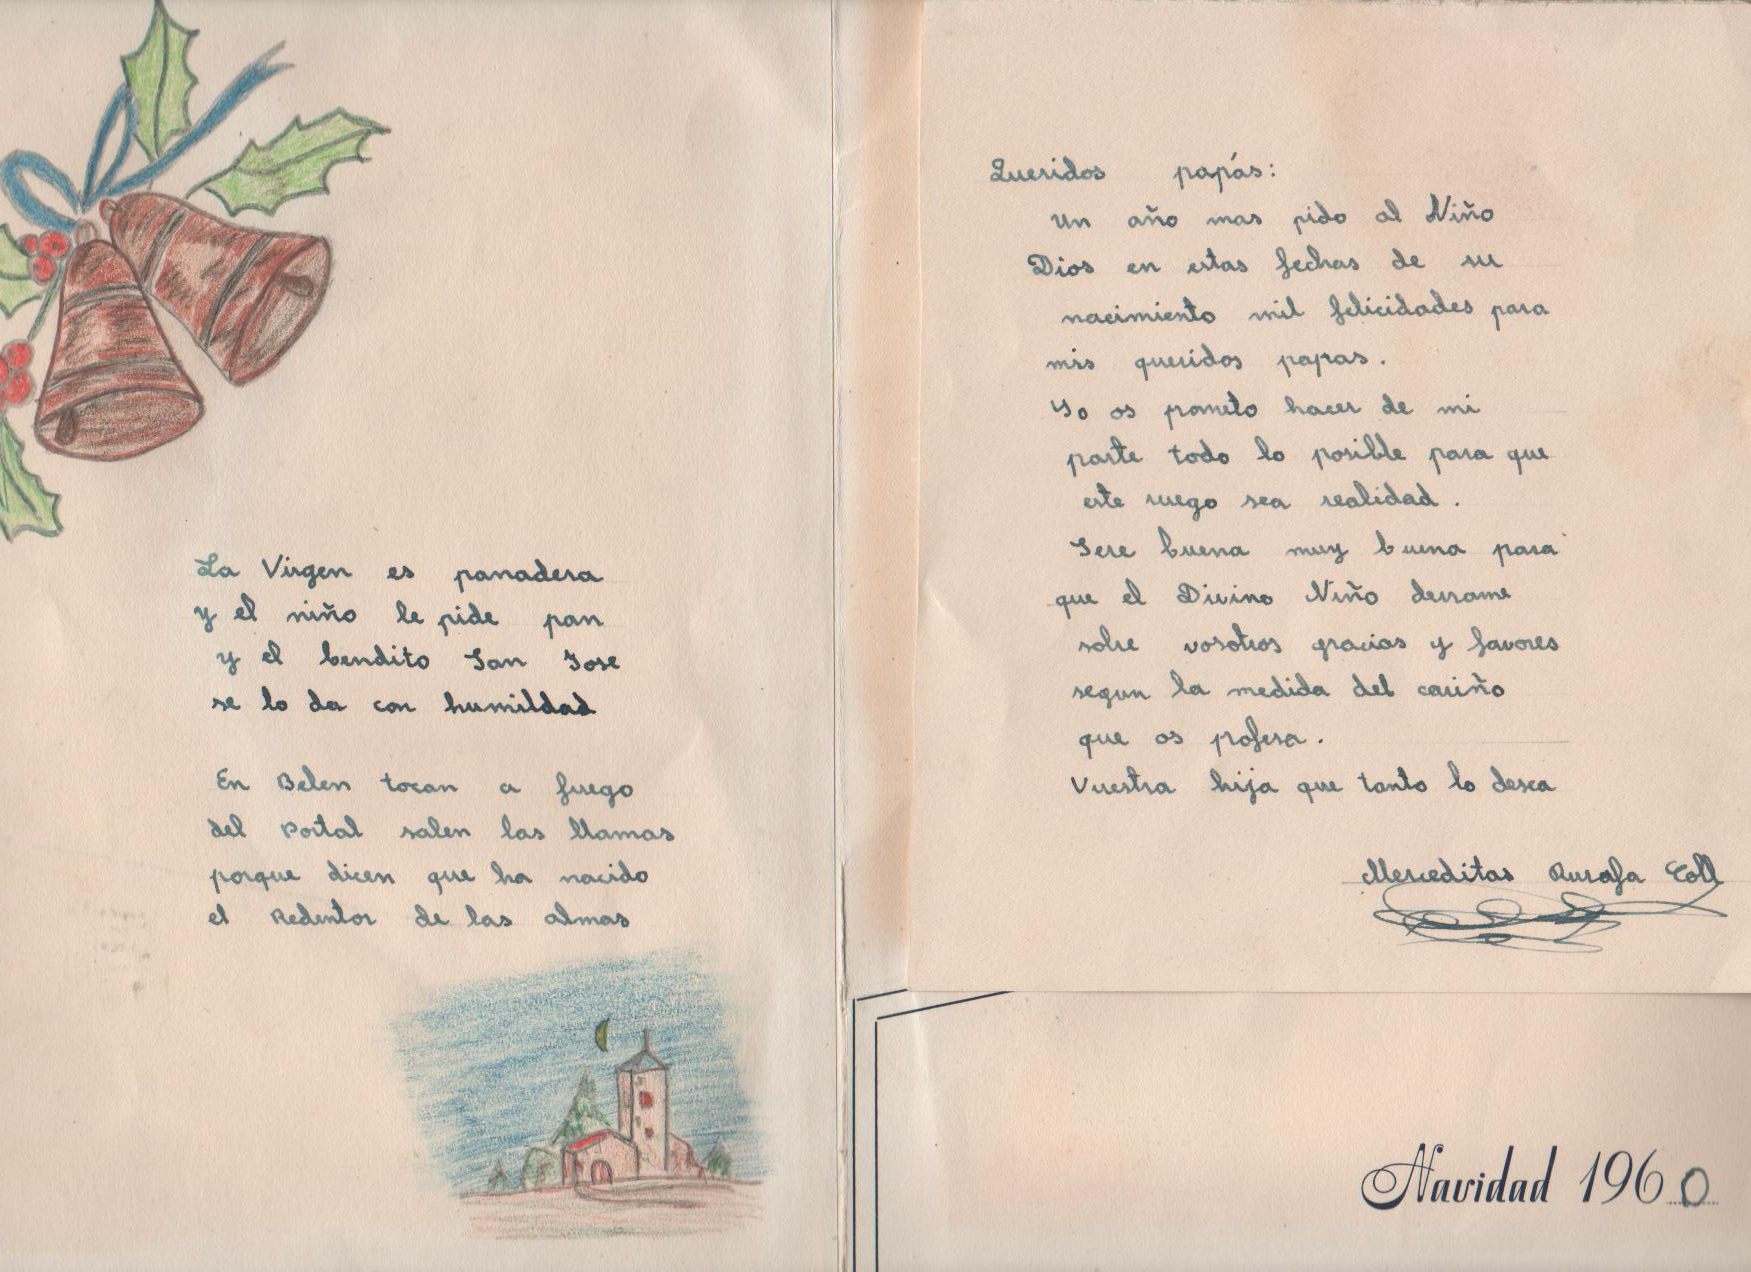 La Virgen es panadera
y el niño le pide pan
y el bendito San Jose
se lo da con humildad
En Belen tocan a fuego
del Portal salen las llamas
porque dicen que ha nacido
el Redentor de las almas
Queridos papás:
Un año mas pido al Niño
Dios en estas fechas de su
nacimiento mil felicidades para
mis queridos papas.
Yo os prometo hacer de mi
parte todo lo posible para que
este ruego sea realidad.
Sere buena muy buena para
que el Divino Niño derrame
sobre vosotros gracias y favores
segun la medida del cariño
que os profesa.
Vuestra hija que tanto lo desea
Merceditas Rurafa Coll
Navidad 1960